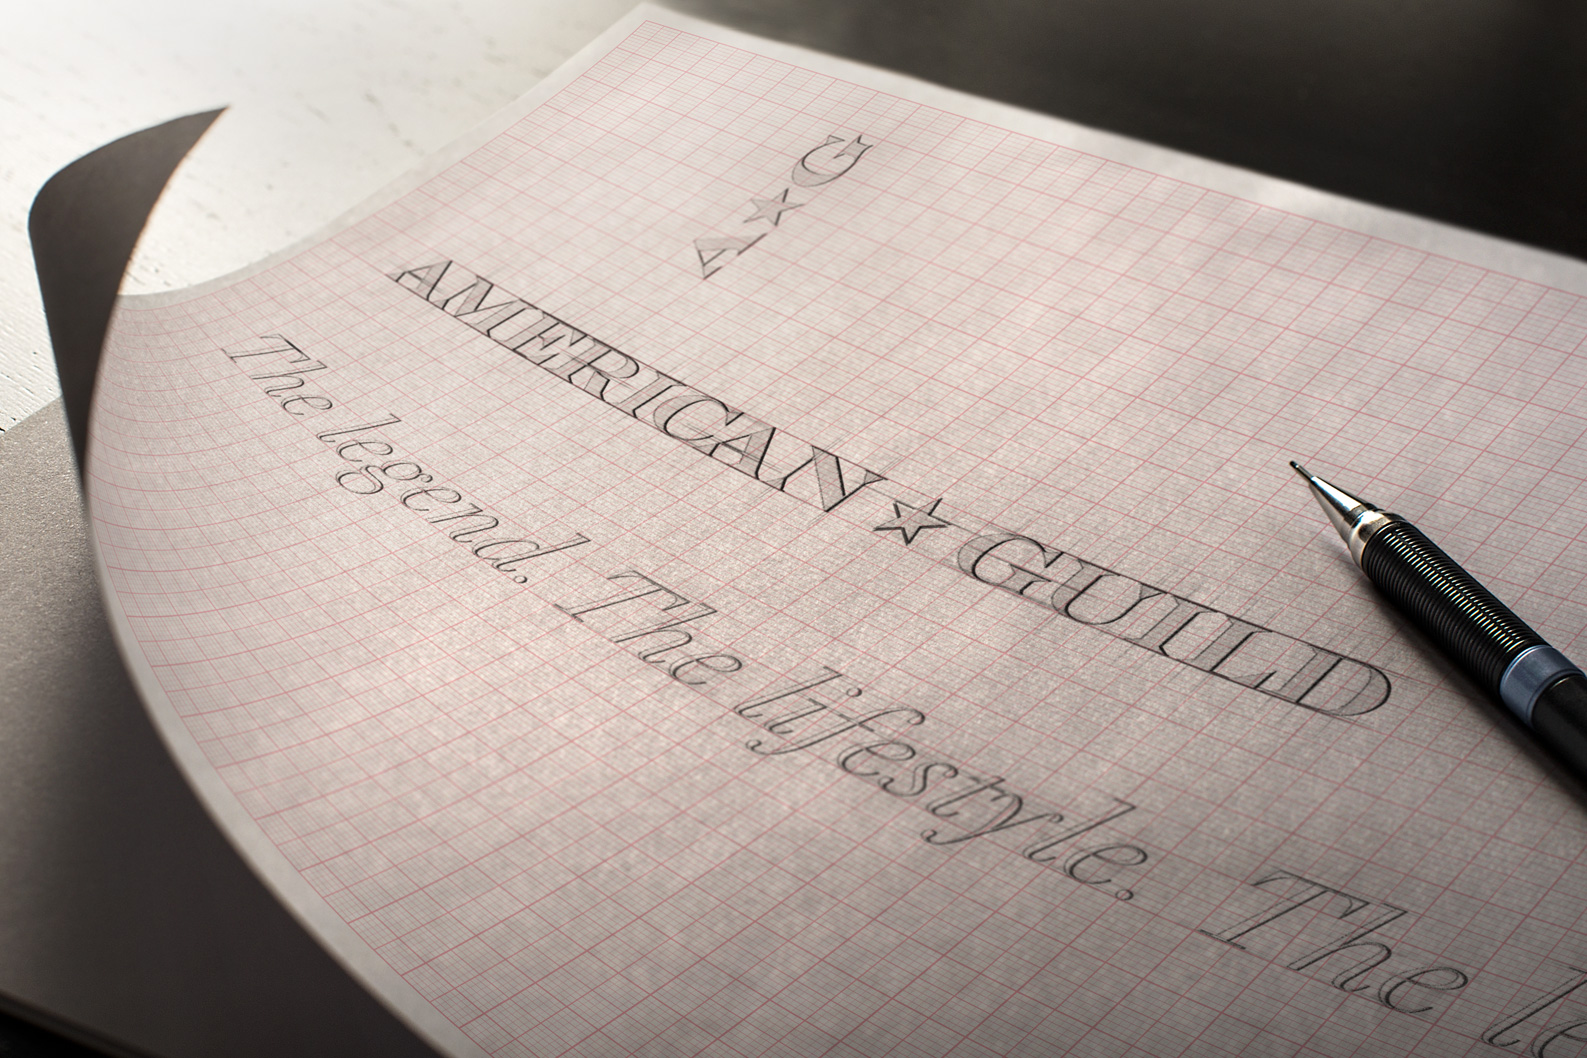 A☆G
AMERICAN☆GUILD
The legend. The lifestyle. The le